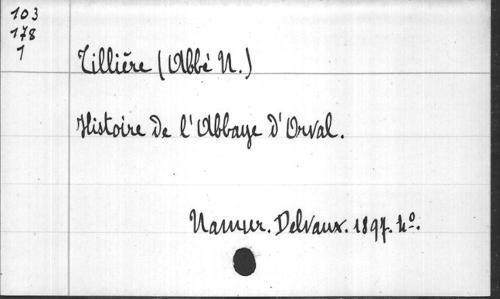 103
178
1
Tillière (Abbé N.)
Histoire de l'Abbaye d'Orval.
Namur. Delvaux. 1897. 4°.